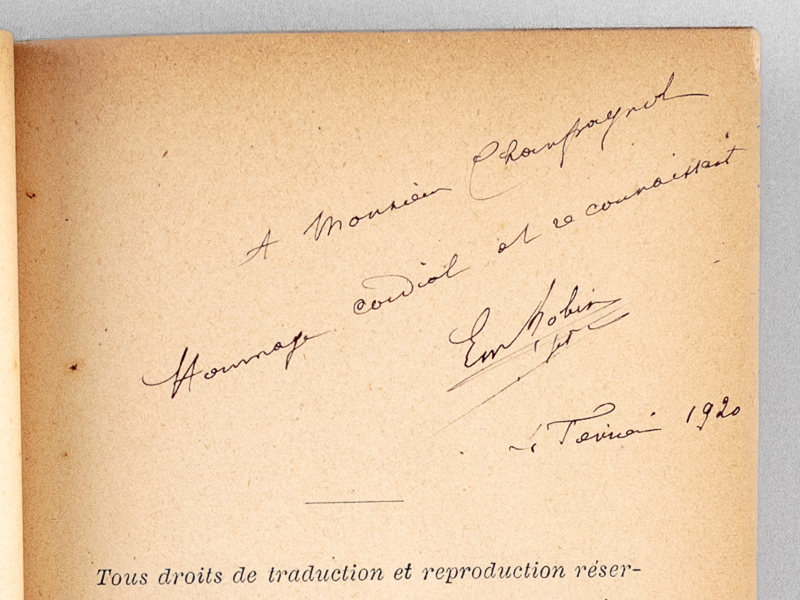 A Monsieur Champagnol
Hommage cordial et reconnaissant
Em Robin
Février 1920
Tous droits de traduction et reproduction réser-